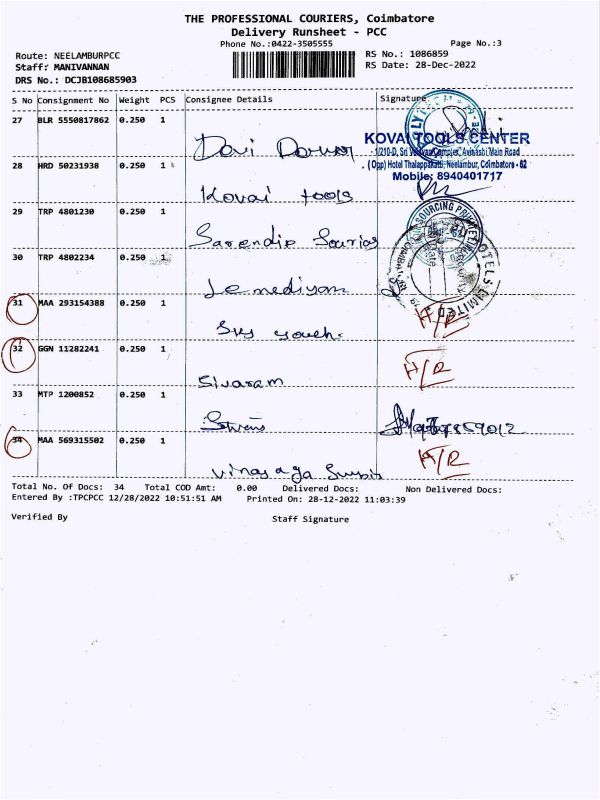 THE PROFESSIONAL COURIERS, Coimbatore
Delivery Runsheet - PCC
Phone No.:0422-3505555
Page No.:3
Route: NEELAMBURPCC
RS No.: 1086859
Staff: MANIVANNAN
RS Date: 28-Dec-2022
DRS No.: DCJB108685903
S No Consignment No Weight PCS Consignee Details Signature
27 BLR 5550817862 0.250 1
KOVAI TOOLS CENTER
1/210-D, Sri Complex, Avinashi Main Road
(Opp) Hotel Thalappakatti, Neelambur, Coimbatore - 62
Mobile: 8940401717
28 HRD 50231938 0.250 1
Kovai tools
29 TRP 4801230 0.250 1
SOURCING PRIVATE
30 TRP 4802234 0.250 1
HOTELS LIMITED
31 MAA 293154388 0.250 1
Sky H/R
32 GGN 11282241 0.250 1
Sivaram H/R
33 MTP 1200852 0.250 1
34 MAA 569315502 0.250 1
Vinayaga H/R
Total No. Of Docs: 34 Total COD Amt: 0.00 Delivered Docs: Non Delivered Docs:
Entered By :TPCPCC 12/28/2022 10:51:51 AM Printed On: 28-12-2022 11:03:39
Verified By Staff Signature